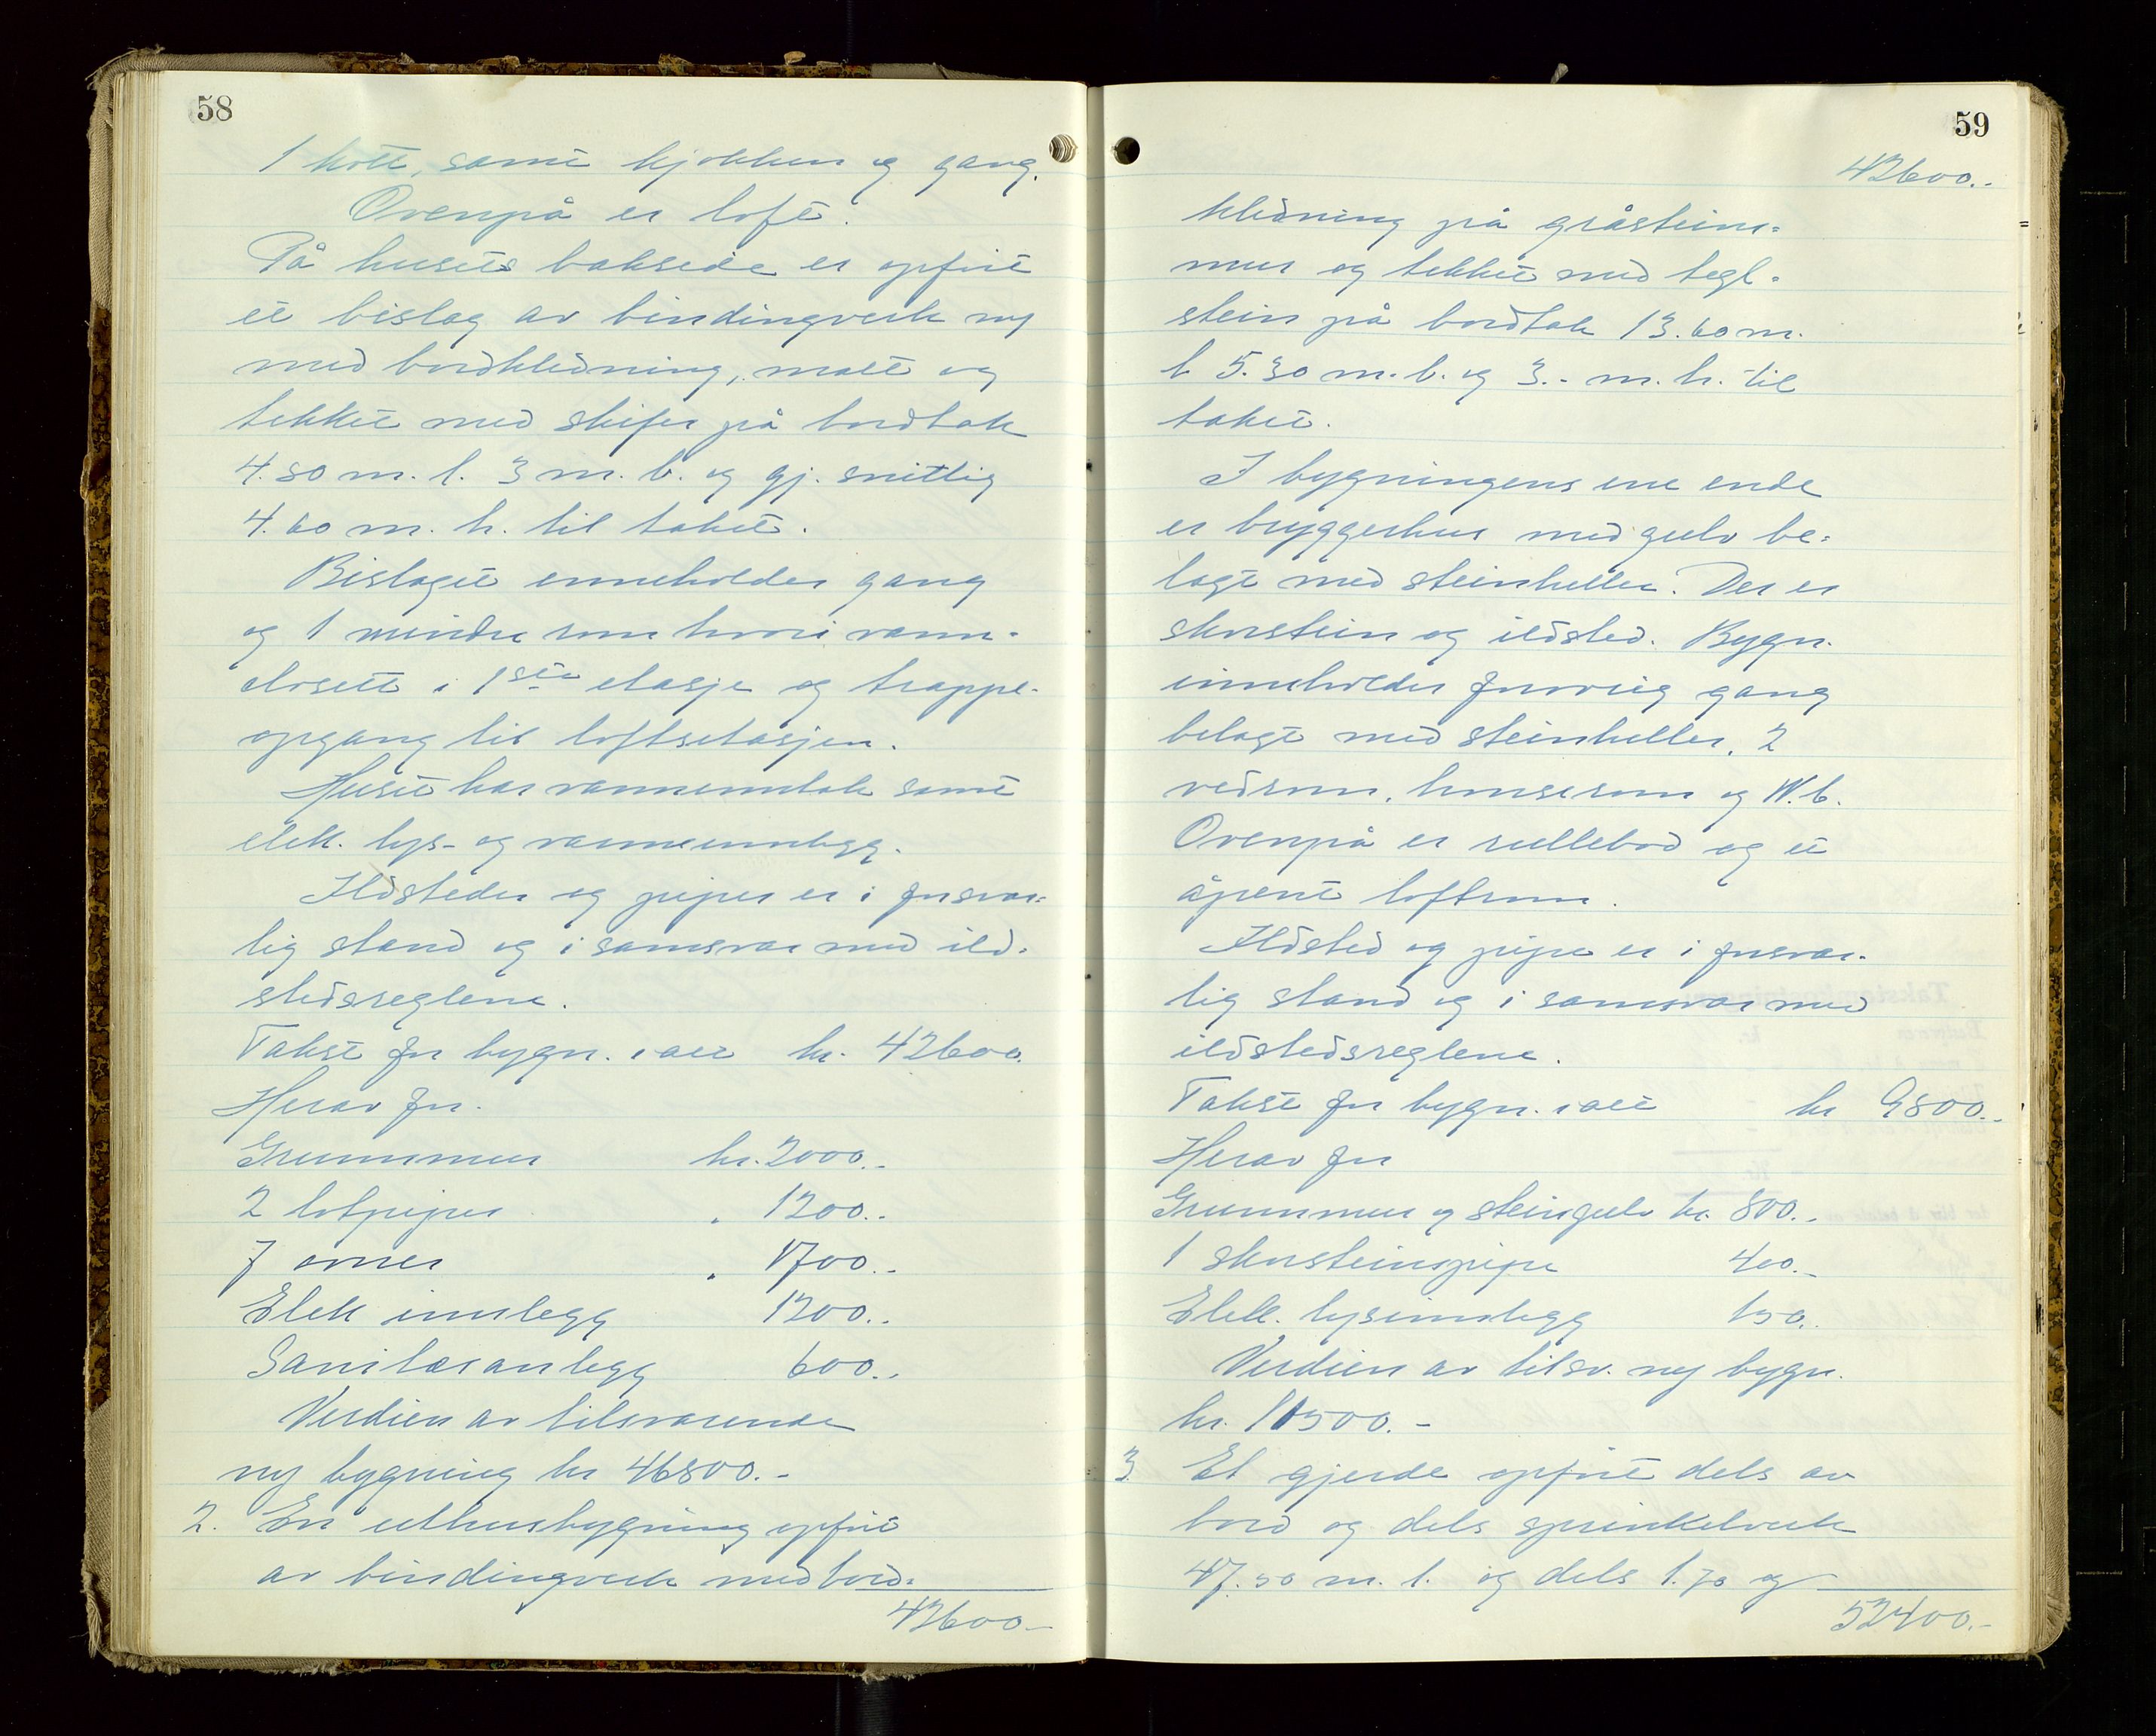 58
1 kott, samt kjøkken og gang.
Ovenpå er loft.
På husets bakside er opført
et bislag av bindingverk
med bordkledning, malt og
tekket med skifer på bordtak
4.80 m. l. 3 m. b. og gj. snittlig
4.60 m. h. til taket.
Bislaget inneholder gang
og 1 mindre rom hvori vann-
closett i 1ste etasje og trappe-
opgang til loftsetasjen.
Huset har vanninntak samt
elek. lys- og varmeinnlegg.
Ildsteder og piper er i forsvar-
lig stand og i samsvar med ild-
stedsreglene.
Takst for bygn. i alt kr. 42600.
Herav for
Grunnmur kr. 2000.-
2 løtpiper " 1200.-
7 ovner " 1700.-
Elek innlegg 1200.-
Sanitæranlegg 600.-
Verdien av tilsvarende
ny bygning kr 46800.-
2. En uthusbygning opført
av bindingverk med bord-
42600.-
59
42600.-
kledning på gråstein-
mur og tekket med tegl-
stein på bordtak 13.60 m.
l. 5.30 m. b. og 3.- m. h. til
taket.
I bygningens ene ende
er bryggerhus med gulv be-
lagt med steinheller. Der er
skorstein og ildsted. Bygn.
inneholder forøvrig gang
belagt med steinheller, 2
vedrom, hønserom og W.C.
Ovenpå er rullebod og et
åpent loftrom.
Ildsted og pipe er i forsvar-
lig stand og i samsvar med
ildstedsreglene.
Takst for bygn. i alt kr 9800.-
Herav for
Grunnmur og steingulv kr. 800.-
1 skorsteinspipe 400.-
Elek. lysinnlegg 150.-
Verdien av tilsv. ny bygn.
kr. 11500.-
3. Et gjerde opført dels av
bord og dels sprinkelverk
47.50 m. l. og dels 1.70 og
52400.-